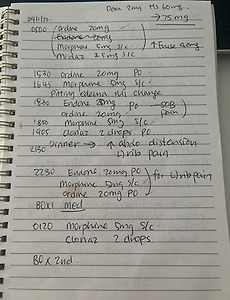 Dexa 2mg Ms 60mg
→ 75mg
29/1/22
0500 Ordine 20mg
Endone 20mg
Morphine 5mg S/C ↑ Fuse 40mg
Midaz 2.5mg S/C
1530 ordine 20mg PO
1645 Morphine 5mg S/C
Pitting edema nil change
1830 Endone 20mg PO → SOB
ordine 20mg Pain
1850 Morphine 5mg S/C
1905 Clonaz 2 drops PO
Dinner → ↑ abdo distension
2130 rib pain
2230 Endone 20mg PO for rib pain
Morphine 5mg S/C
ordine 20mg PO
BOX1 Med
0120 Morphine 5mg S/C
Clonaz 2 drops
BO x 2nd